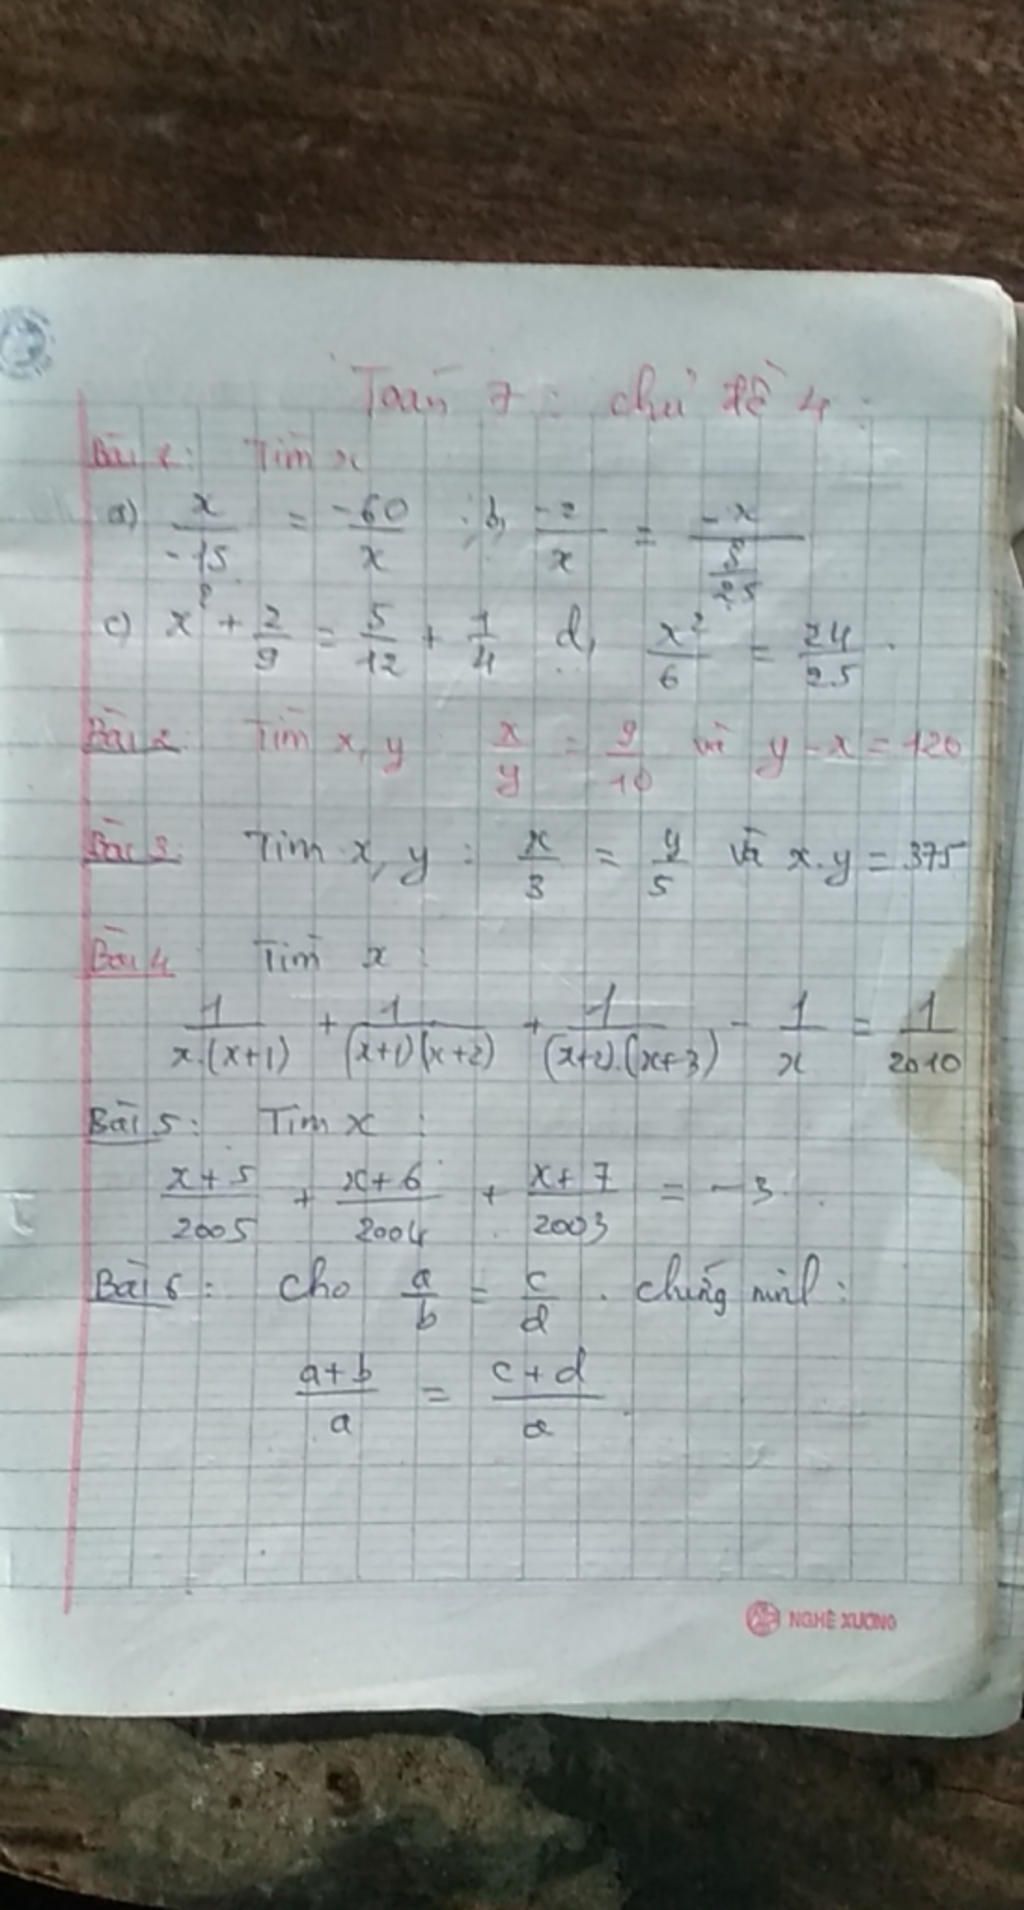 Toán 7 : chủ đề 4 :
Bài 1 : Tìm x
a) x/-15 = -60/x ; b, -2/x = -x/(8/25)
c) x² + 2/9 = 5/12 + 1/4 d, x²/6 = 24/25 .
Bài 2 Tìm x, y x/y = 9/10 và y - x = 120
Bài 3 Tìm x, y : x/3 = y/5 và x.y = 375
Bài 4 Tìm x :
1/x.(x+1) + 1/(x+1)(x+2) + 1/(x+2).(x+3) - 1/x = 1/2010
Bài 5 : Tìm x :
x+5/2005 + x+6/2004 + x+7/2003 = -3 .
Bài 6 : Cho a/b = c/d . chứng minh :
a+b/a = c+d/
NGHỆ XƯƠNG